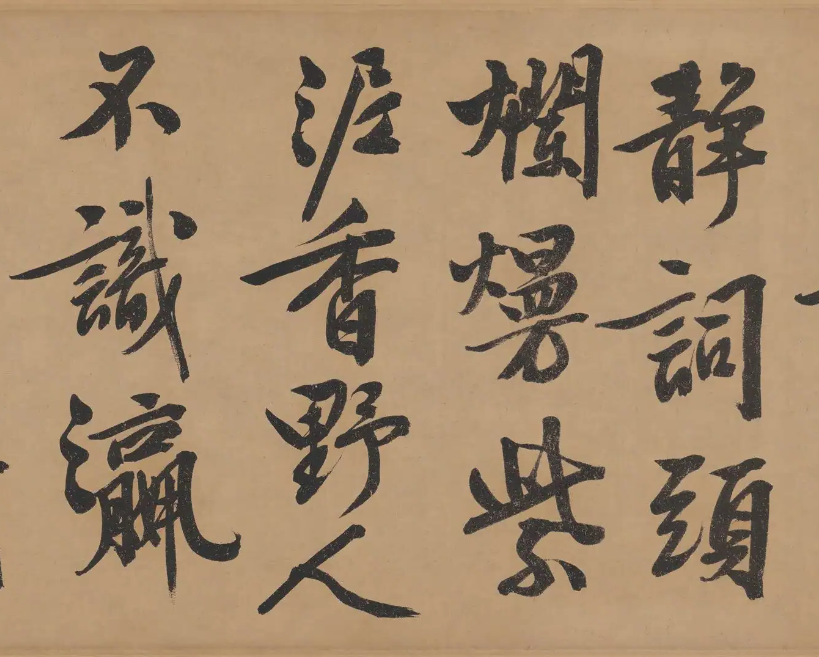 靜詞頭
爛熳紫
泥香野人
不識瀛